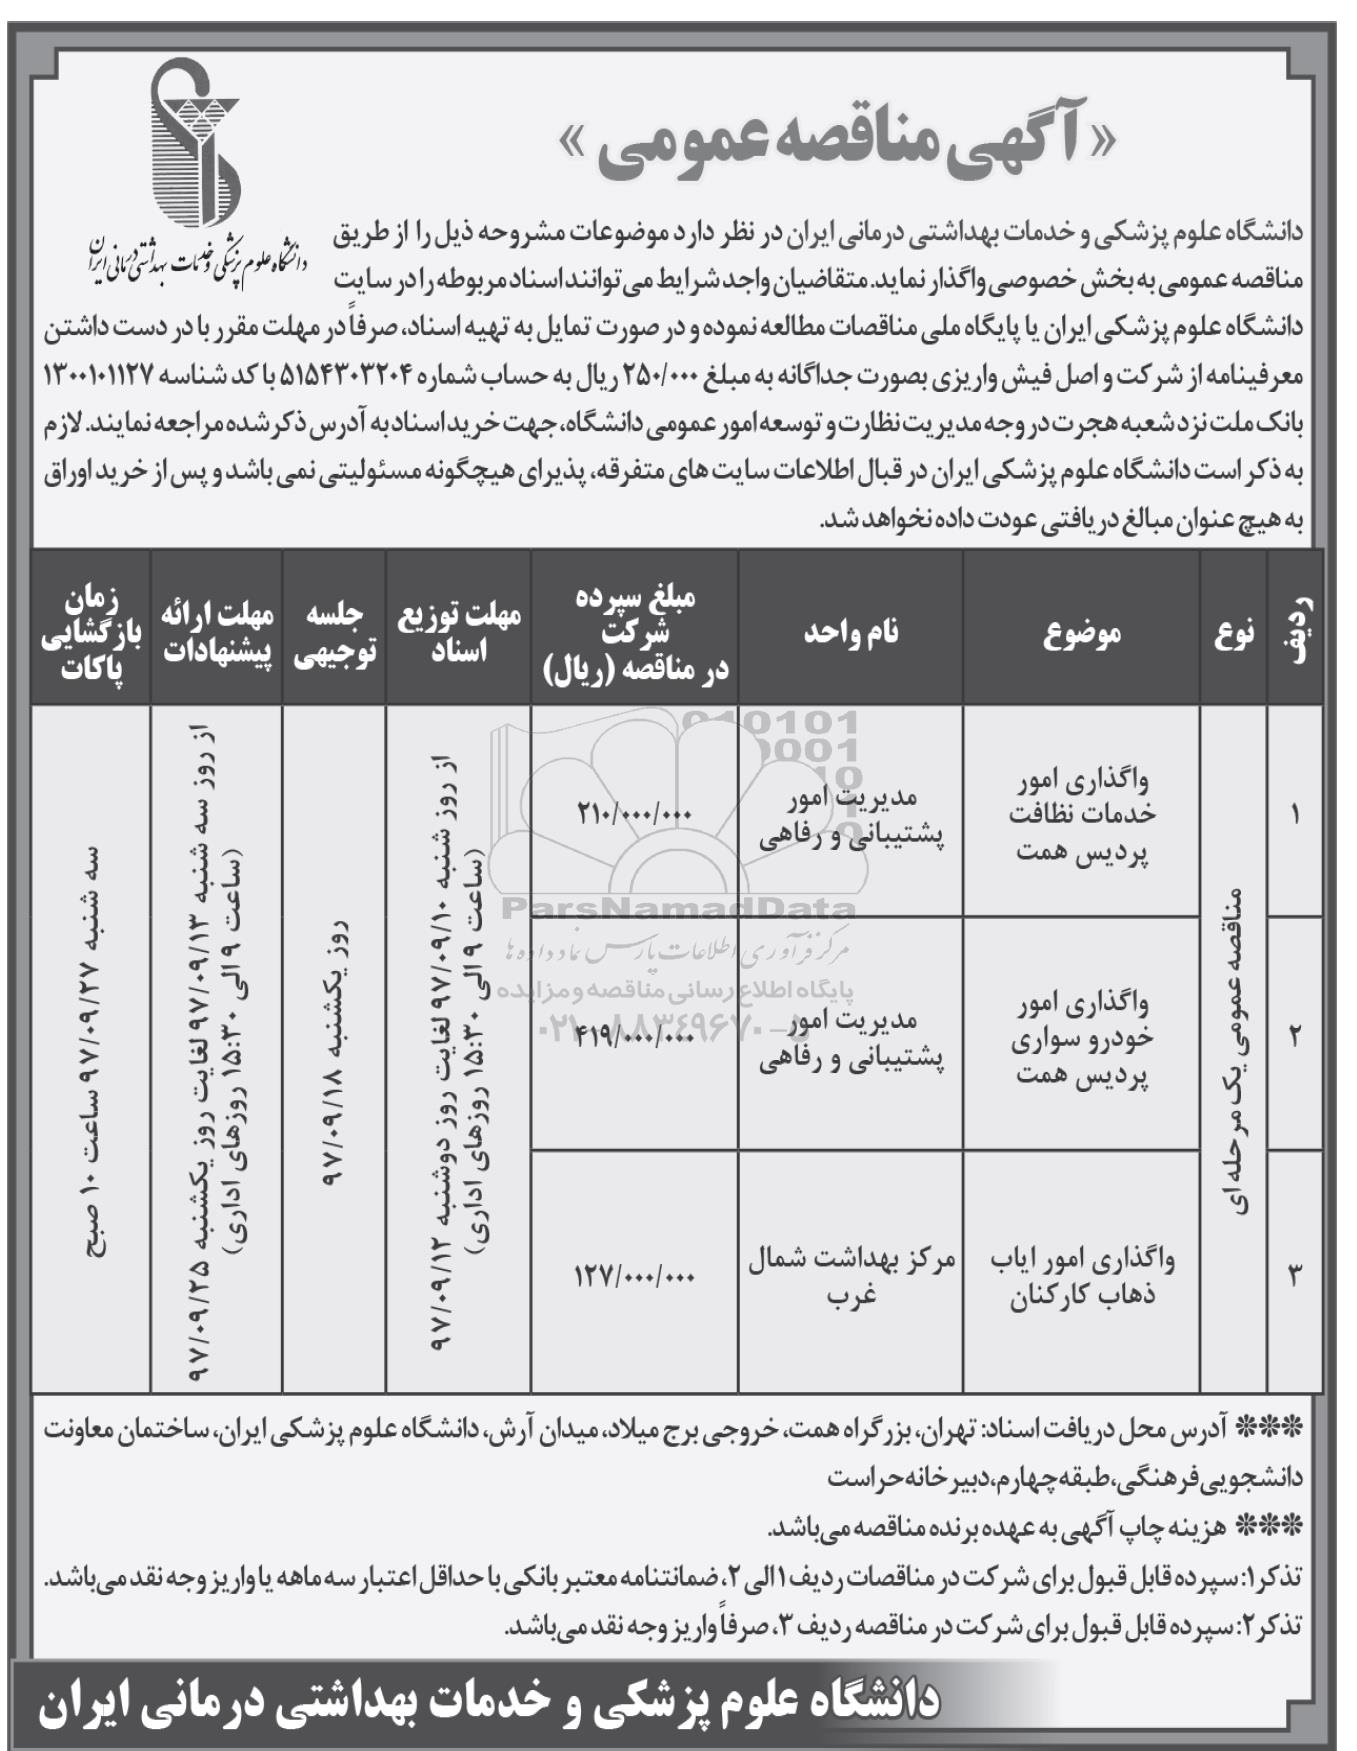 «آگهی مناقصه عمومی»
دانشگاه علوم پزشکی و خدمات بهداشتی درمانی ایران
دانشگاه علوم پزشکی و خدمات بهداشتی درمانی ایران در نظر دارد موضوعات مشروحه ذیل را از طریق
مناقصه عمومی به بخش خصوصی واگذار نماید. متقاضیان واجد شرایط می توانند اسناد مربوطه را در سایت
دانشگاه علوم پزشکی ایران یا پایگاه ملی مناقصات مطالعه نموده و در صورت تمایل به تهیه اسناد، صرفاً در مهلت مقرر با در دست داشتن
معرفینامه از شرکت و اصل فیش واریزی بصورت جداگانه به مبلغ ۲۵۰/۰۰۰ ریال به حساب شماره ۵۱۵۴۳۰۳۲۰۴ با کد شناسه ۱۳۰۰۱۰۱۱۲۷
بانک ملت نزد شعبه هجرت در وجه مدیریت نظارت و توسعه امور عمومی دانشگاه، جهت خرید اسناد به آدرس ذکر شده مراجعه نمایند. لازم
به ذکر است دانشگاه علوم پزشکی ایران در قبال اطلاعات سایت های متفرقه، پذیرای هیچگونه مسئولیتی نمی باشد و پس از خرید اوراق
به هیچ عنوان مبالغ دریافتی عودت داده نخواهد شد.
ردیف
نوع
موضوع
نام واحد
مبلغ سپرده
شرکت
در مناقصه (ریال)
مهلت توزیع
اسناد
جلسه
توجیهی
مهلت ارائه
پیشنهادات
زمان
بازگشایی
پاکات
۱
مناقصه عمومی یک مرحله ای
واگذاری امور
خدمات نظافت
پردیس همت
مدیریت امور
پشتیبانی و رفاهی
۲۱۰/۰۰۰/۰۰۰
از روز شنبه ۹۷/۰۹/۱۰ لغایت روز دوشنبه ۹۷/۰۹/۱۲
(ساعت ۹ الی ۱۵:۳۰ روزهای اداری)
روز یکشنبه ۹۷/۰۹/۱۸
از روز سه شنبه ۹۷/۰۹/۱۳ لغایت روز یکشنبه ۹۷/۰۹/۲۵
(ساعت ۹ الی ۱۵:۳۰ روزهای اداری)
سه شنبه ۹۷/۰۹/۲۷ ساعت ۱۰ صبح
۲
واگذاری امور
خودرو سواری
پردیس همت
مدیریت امور
پشتیبانی و رفاهی
۴۱۹/۰۰۰/۰۰۰
۳
واگذاری امور ایاب
ذهاب کارکنان
مرکز بهداشت شمال
غرب
۱۲۷/۰۰۰/۰۰۰
ParsNamadData
مرکز فرآوری اطلاعات پارس نماد داده ها
پایگاه اطلاع رسانی مناقصه و مزایده
۰۲۱-۸۸۳۴۹۶۷۰-۵
*** آدرس محل دریافت اسناد: تهران، بزرگراه همت، خروجی برج میلاد، میدان آرش، دانشگاه علوم پزشکی ایران، ساختمان معاونت
دانشجویی فرهنگی، طبقه چهارم، دبیرخانه حراست
*** هزینه چاپ آگهی به عهده برنده مناقصه می‌باشد.
تذکر۱: سپرده قابل قبول برای شرکت در مناقصات ردیف ۱ الی ۲، ضمانتنامه معتبر بانکی با حداقل اعتبار سه ماهه یا واریز وجه نقد می‌باشد.
تذکر۲: سپرده قابل قبول برای شرکت در مناقصه ردیف ۳، صرفاً واریز وجه نقد می‌باشد.
دانشگاه علوم پزشکی و خدمات بهداشتی درمانی ایران